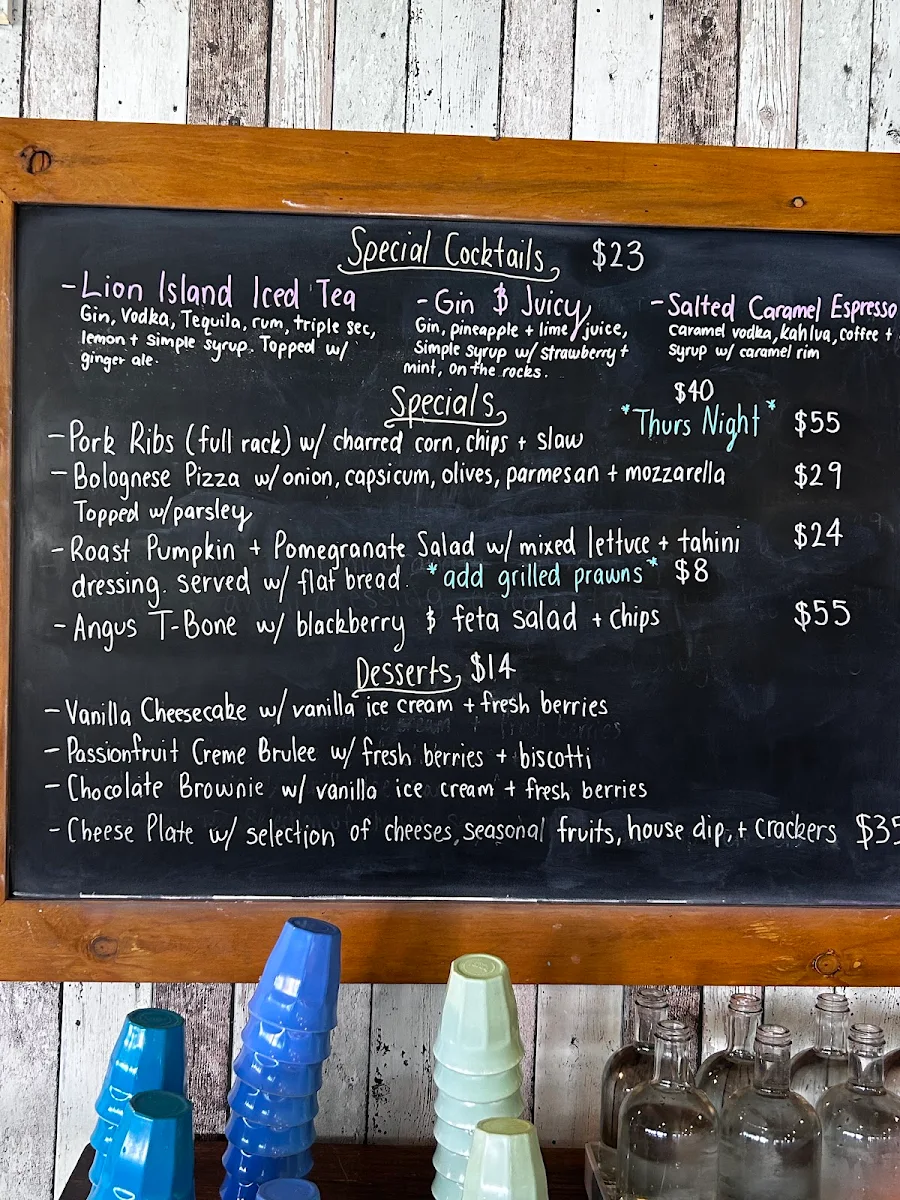 Special Cocktails $23
- Lion Island Iced Tea
Gin, Vodka, Tequila, rum, triple sec,
lemon + simple syrup. Topped w/
ginger ale.
- Gin $ Juicy
Gin, pineapple + lime juice,
Simple syrup w/ strawberry +
mint, on the rocks.
- Salted Caramel Espresso
caramel vodka, kahlua, coffee +
syrup w/ caramel rim
Specials
$40
- Pork Ribs (full rack) w/ charred corn, chips + slaw *Thurs Night* $55
- Bolognese Pizza w/ onion, capsicum, olives, parmesan + mozzarella $29
Topped w/ parsley
- Roast Pumpkin + Pomegranate Salad w/ mixed lettuce + tahini $24
dressing. served w/ flat bread. *add grilled prawns* $8
- Angus T-Bone w/ blackberry $ feta salad + chips $55
Desserts $14
- Vanilla Cheesecake w/ vanilla ice cream + fresh berries
- Passionfruit Creme Brulee w/ fresh berries + biscotti
- Chocolate Brownie w/ vanilla ice cream + fresh berries
- Cheese Plate w/ selection of cheeses, seasonal fruits, house dip, + crackers $35